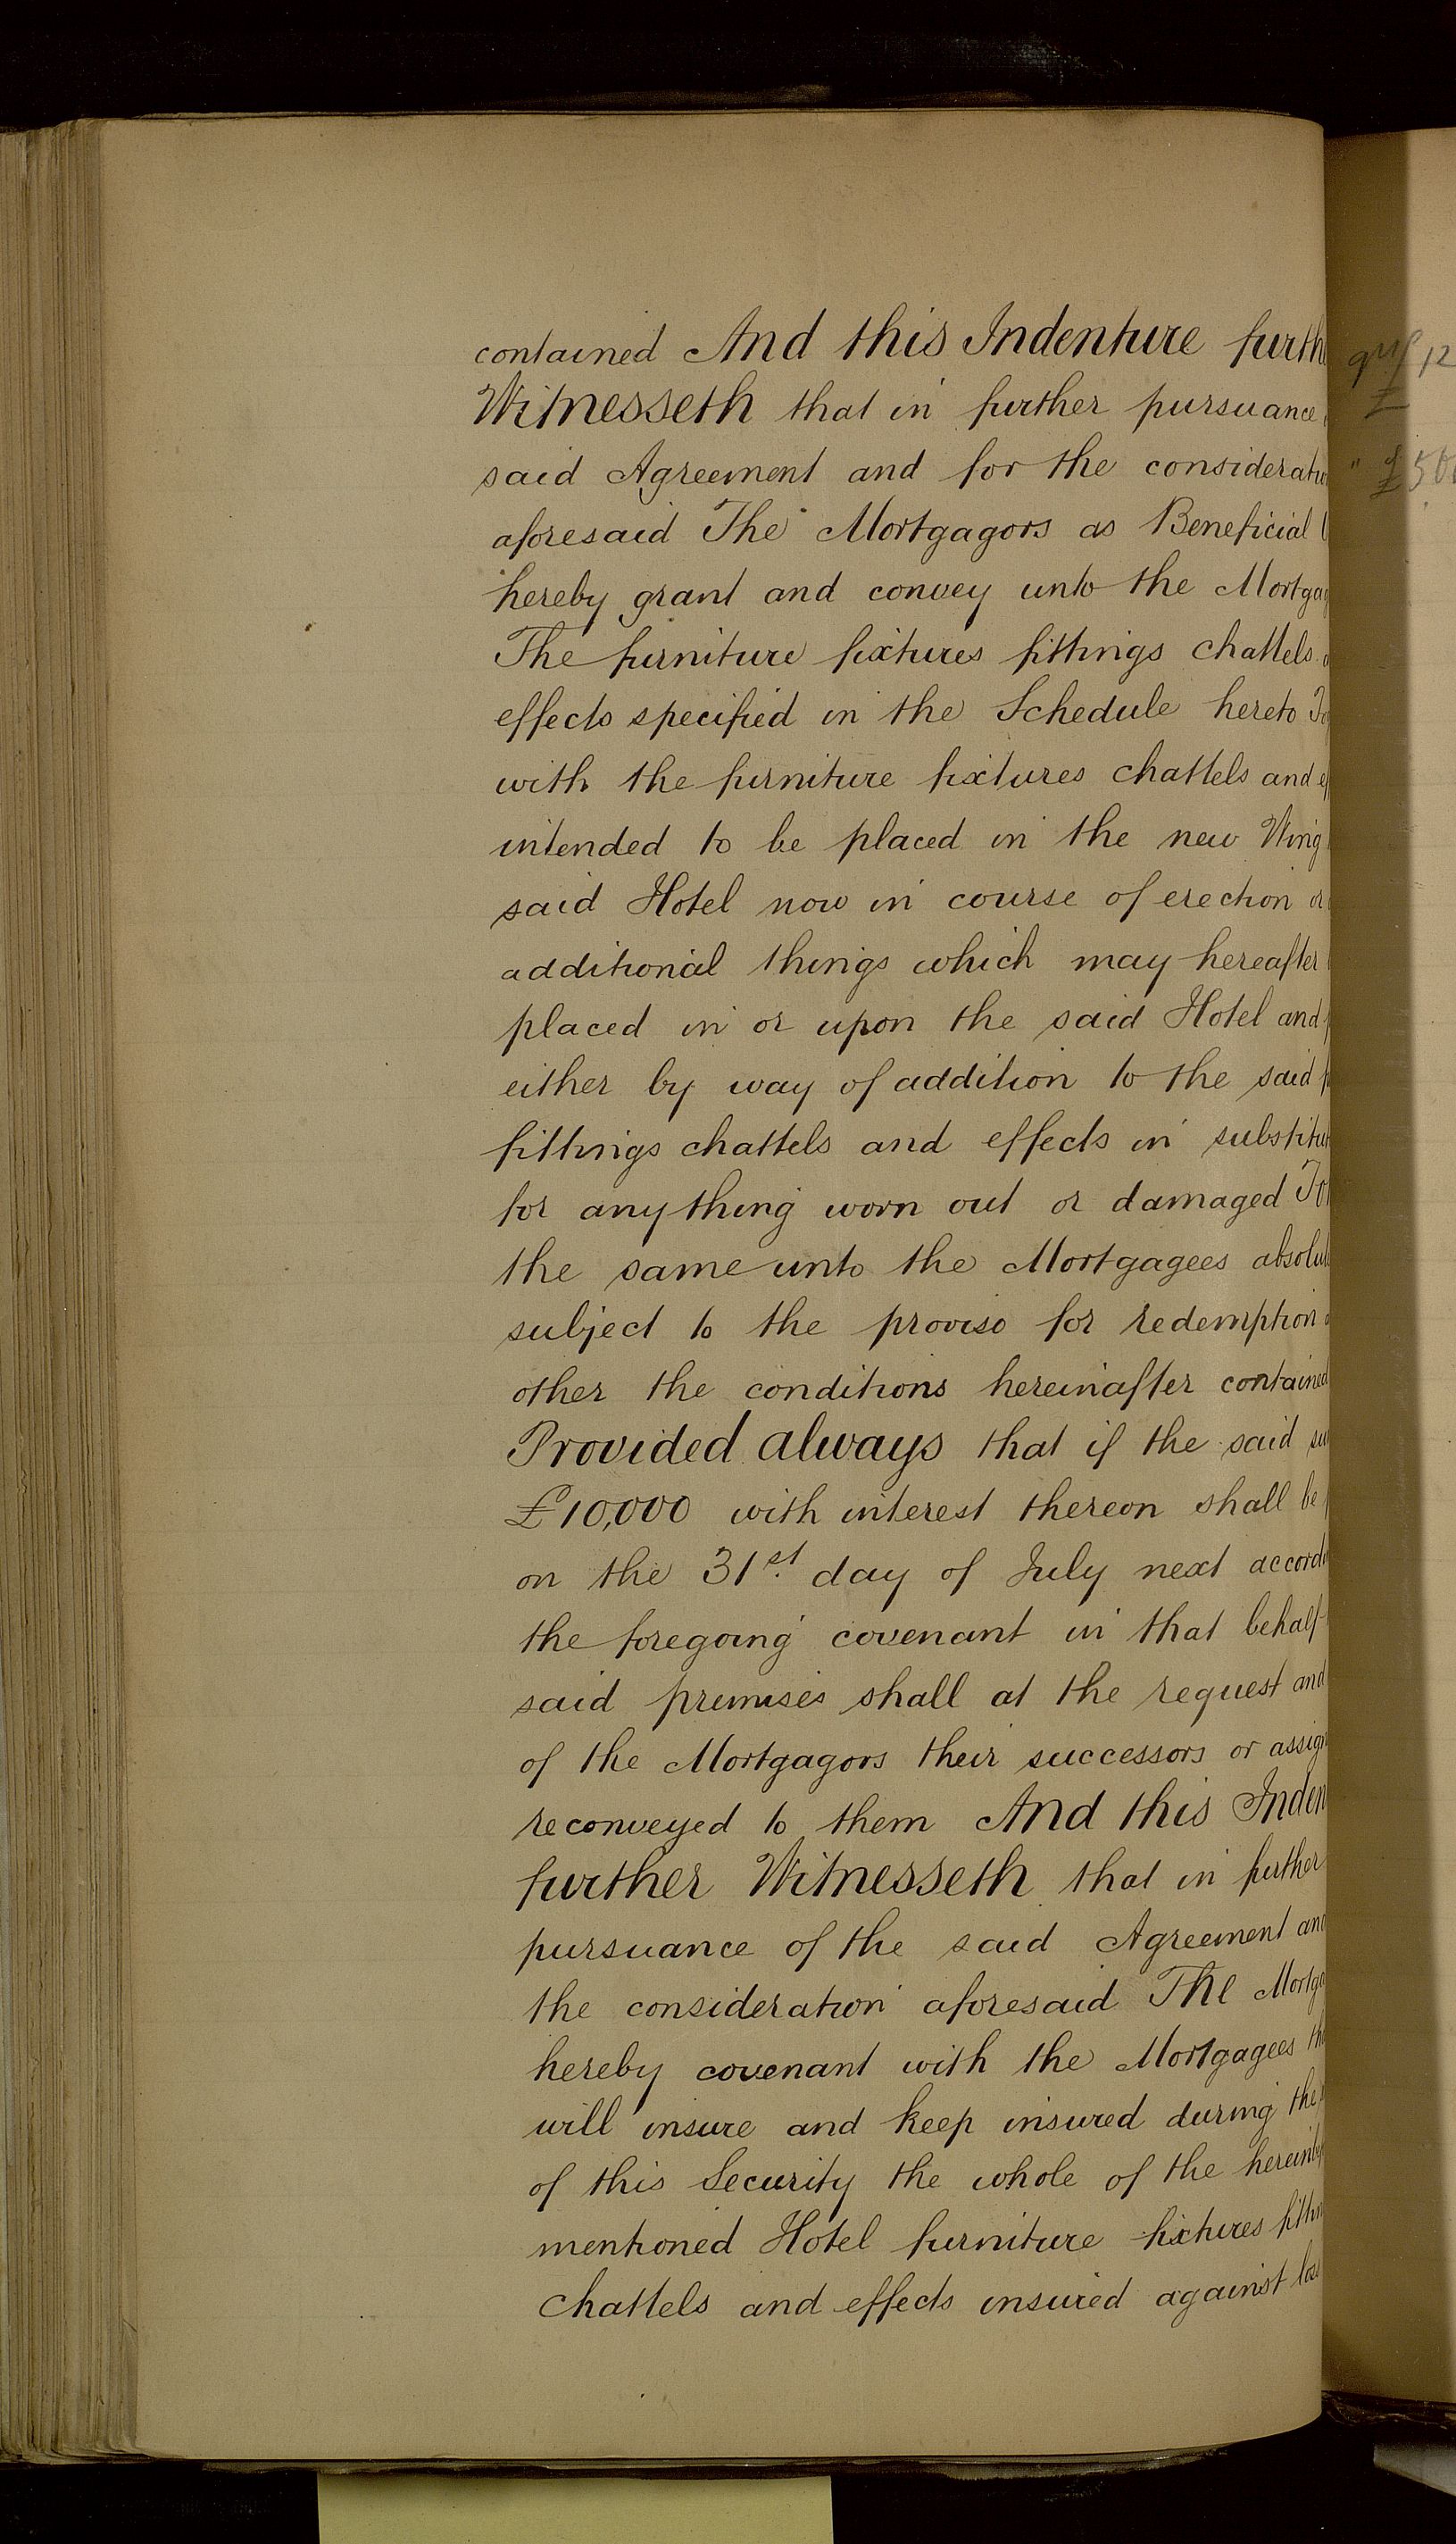 contained And this Indenture furth
Witnesseth that in further pursuance
said Agreement and for the consideratio
aforesaid The Mortgagors as Beneficial
hereby grant and convey unto the Mortgag
The furniture fixtures fittings chattels
effects specified in the Schedule hereto To
with the furniture fixtures chattels and ef
intended to be placed in the new Wing
said Hotel now in course of erection or
additional things which may hereafter
placed in or upon the said Hotel and
either by way of addition to the said
fittings chattels and effects in substitut
for any thing worn out or damaged To
the same unto the Mortgagees absolut
subject to the proviso for redemption
other the conditions hereinafter contained
Provided always that if the said su
£10,000 with interest thereon shall be
on the 31st. day of July next accordi
the foregoing covenant in that behalf
said premises shall at the request and
of the Mortgagors their successors or assign
reconveyed to them And this Inden
further Witnesseth that in further
pursuance of the said Agreement and
the consideration aforesaid The Mortga
hereby covenant with the Mortgagees th
will insure and keep insured during the
of this Security the whole of the hereinbe
mentioned Hotel furniture fixtures fittin
Chattels and effects insured against loss
12
" £50